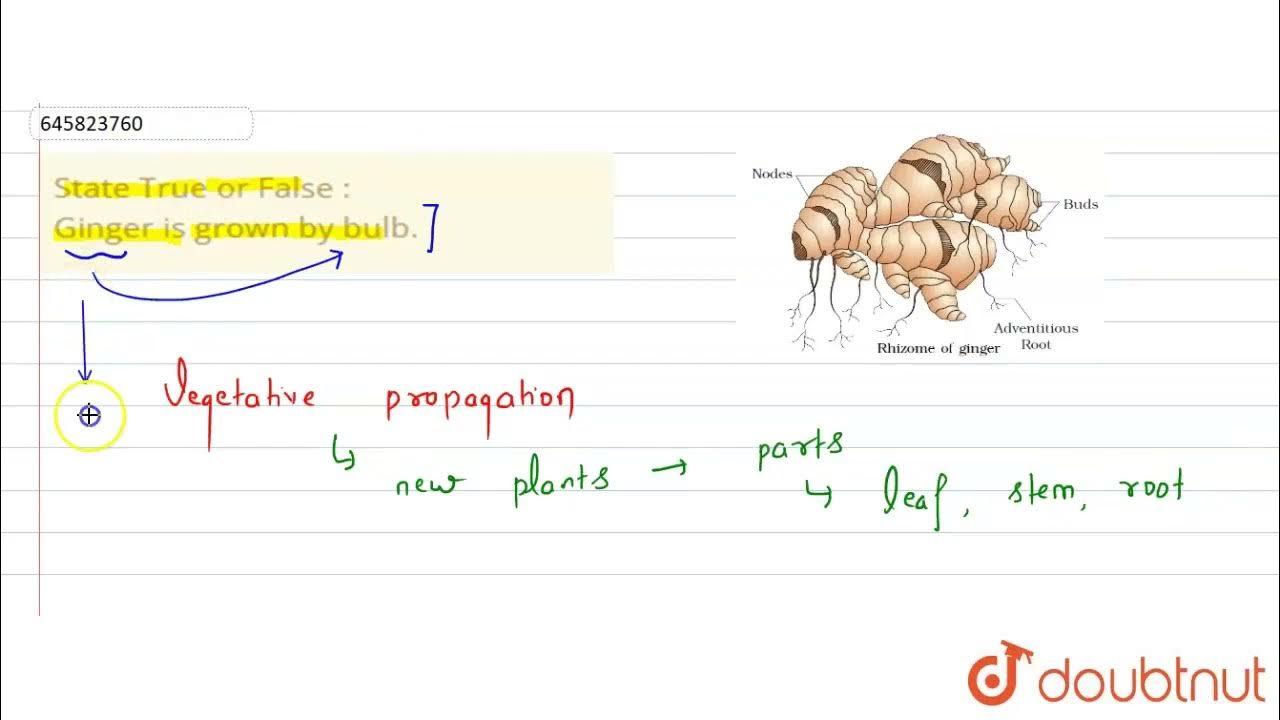 645823760
State True or False :
Ginger is grown by bulb.
Nodes
Buds
Adventitious
Root
Rhizome of ginger
Vegetative propagation
↳ new plants → parts
↳ leaf, stem, root
doubtnut